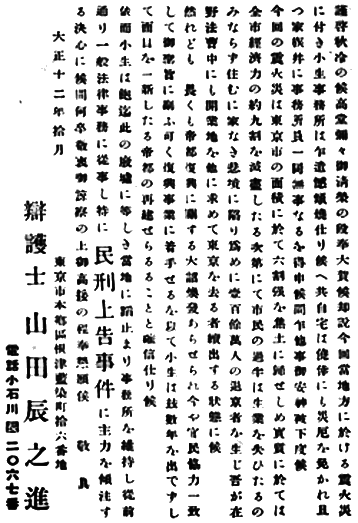 謹啓秋冷の候高堂彌々御清榮の段奉大賀候却説今回當地方に於ける震火災
に付き小生事務所は乍遺憾類燒仕り候へ共自宅は僥倖にも災厄を免かれ且
つ家族幷に事務所員一同無事なるを得申候間乍他事御安神被下度候
今回の震火災は東京市の面積に於て六割強を焦土に歸せしめ實質に於ては
全市經濟力の約九割を滅盡したる次第にて市民の過半は生業を失ひたるの
みならず住むに家なき悲境に陷り爲めに壹百餘萬人の退京者を生じ吾が在
野法曹中にも開業地を他に求めて東京を去る者續出する狀態に候
然れども 畏くも帝都復興に關する大詔煥發あらせられ今や官民協力一致
して御聖旨に副ふ可く復興事業に着手せるを以て小生は玆數年を出でずし
て面目を一新したる帝都の再建せらるることと確信仕り候
依而小生は飽迄此の廢墟に等しき當地に踏止まり事務所を維持し從前
通り一般法律事務に從事し特に民刑上告事件に主力を傾注す
る決心に候間何卒敬衷御諒察の上御高援の程奉懇願候 敬具
大正十二年拾月
東京市本鄕區根津藍染町拾六番地
辯護士 山田辰之進
電話小石川 二〇六七番